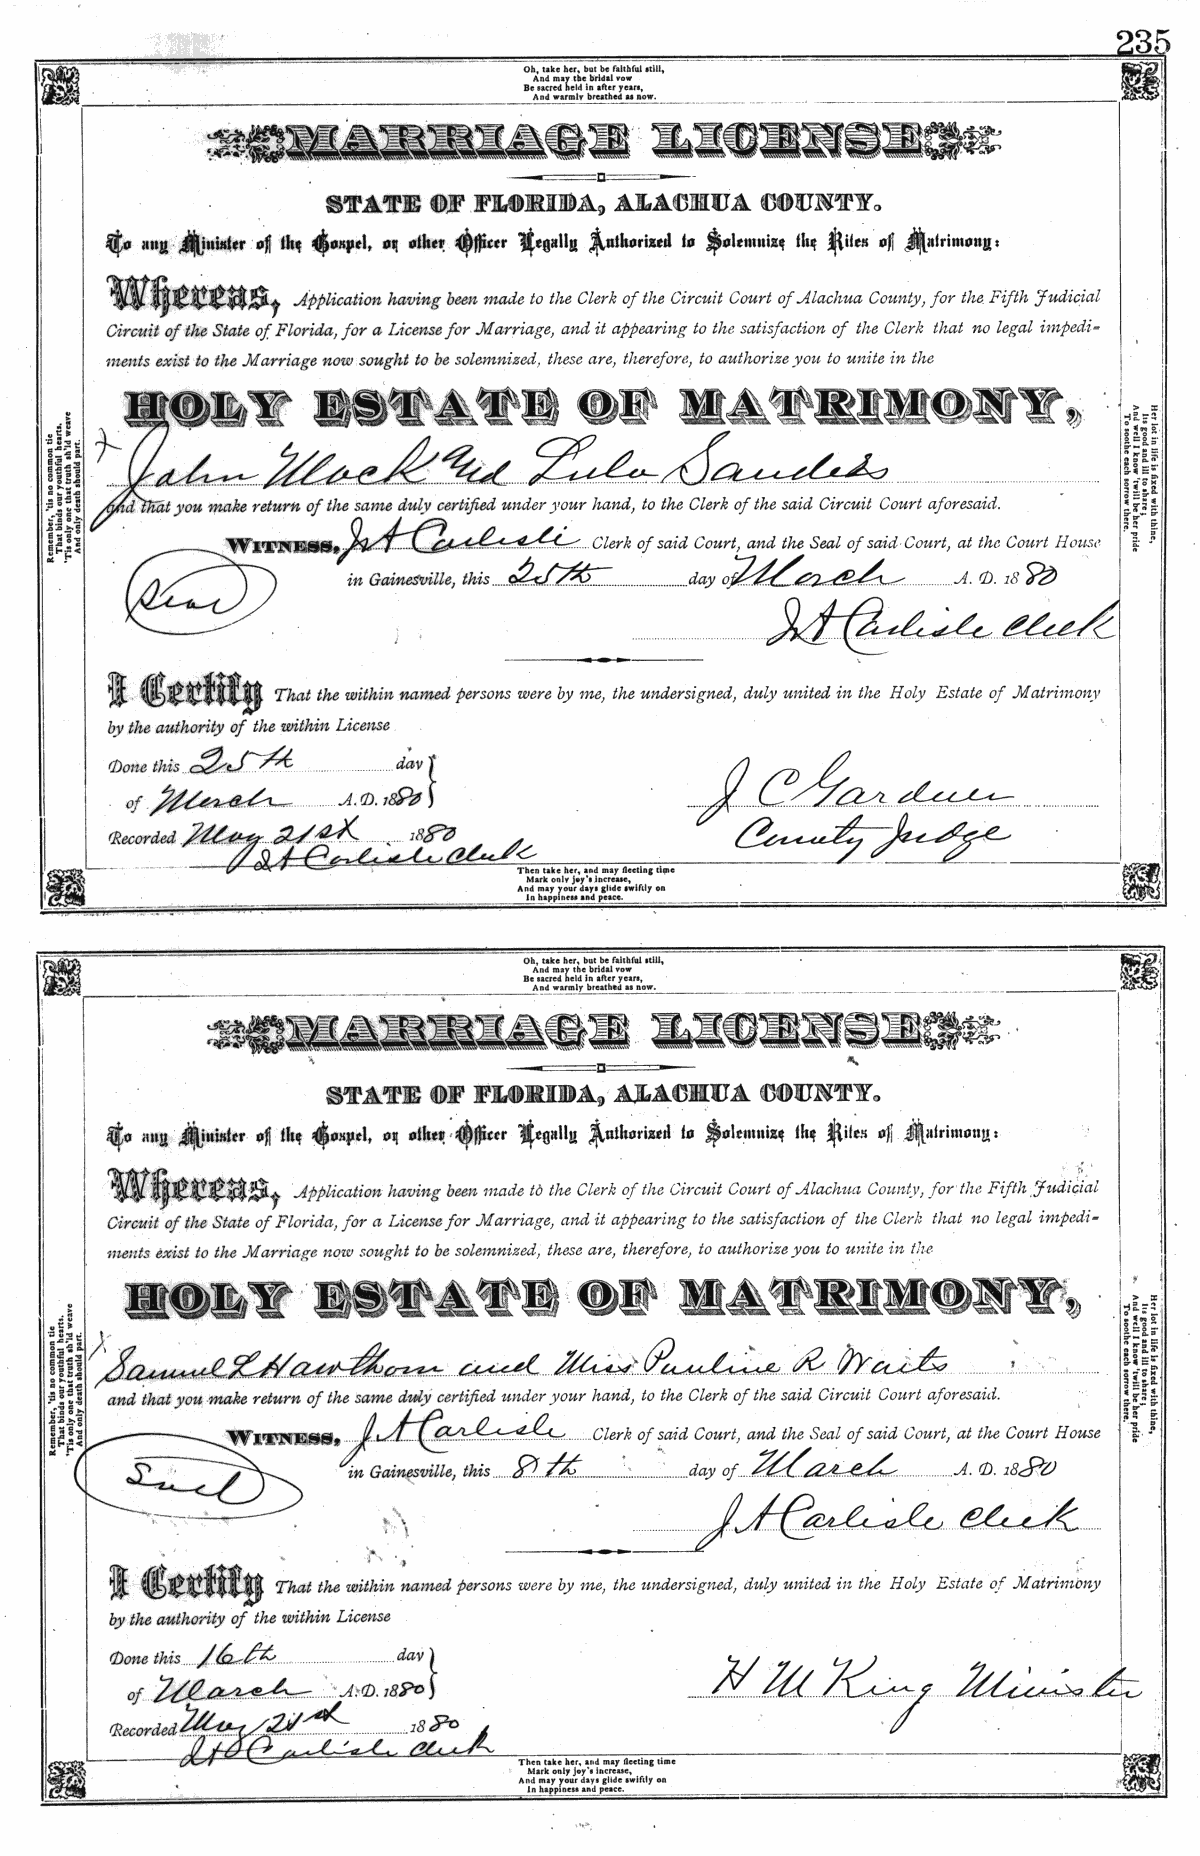 235
Oh, take her, but be faithful still,
And may the bridal vow
Be sacred held in after years,
And warmly breathed as now.
MARRIAGE LICENSE
STATE OF FLORIDA, ALACHUA COUNTY.
To any Minister of the Gospel, or other Officer Legally Authorized to Solemnize the Rites of Matrimony:
Whereas, Application having been made to the Clerk of the Circuit Court of Alachua County, for the Fifth Judicial
Circuit of the State of Florida, for a License for Marriage, and it appearing to the satisfaction of the Clerk that no legal impedi-
ments exist to the Marriage now sought to be solemnized, these are, therefore, to authorize you to unite in the
HOLY ESTATE OF MATRIMONY,
x
John Mock and Lula Sanders
and that you make return of the same duly certified under your hand, to the Clerk of the said Circuit Court aforesaid.
WITNESS, J A Carlisle Clerk of said Court, and the Seal of said Court, at the Court House
Seal
in Gainesville, this 25th day of March A. D. 1880
J A Carlisle Clerk
I Certify That the within named persons were by me, the undersigned, duly united in the Holy Estate of Matrimony
by the authority of the within License
Done this 25th day
of March A. D. 1880
J C Gardner
Recorded May 21st 1880
County Judge
J A Carlisle Clerk
Then take her, and may fleeting time
Mark only joy's increase,
And may your days glide swiftly on
In happiness and peace.
Remember, 'tis no common tie
That binds our youthful hearts.
'Tis only one that truth sh'ld weave
And only death should part.
Her lot in life is fixed with thine,
Its good and ill to share;
And well I know 'twill be her pride
To soothe each sorrow there.
Oh, take her, but be faithful still,
And may the bridal vow
Be sacred held in after years,
And warmly breathed as now.
MARRIAGE LICENSE
STATE OF FLORIDA, ALACHUA COUNTY.
To any Minister of the Gospel, or other Officer Legally Authorized to Solemnize the Rites of Matrimony:
Whereas, Application having been made to the Clerk of the Circuit Court of Alachua County, for the Fifth Judicial
Circuit of the State of Florida, for a License for Marriage, and it appearing to the satisfaction of the Clerk that no legal impedi-
ments exist to the Marriage now sought to be solemnized, these are, therefore, to authorize you to unite in the
HOLY ESTATE OF MATRIMONY,
x
Samuel L Hawthorn and Miss Pauline R Waits
and that you make return of the same duly certified under your hand, to the Clerk of the said Circuit Court aforesaid.
WITNESS, J A Carlisle Clerk of said Court, and the Seal of said Court, at the Court House
Seal
in Gainesville, this 8th day of March A. D. 1880
J A Carlisle Clerk
I Certify That the within named persons were by me, the undersigned, duly united in the Holy Estate of Matrimony
by the authority of the within License
Done this 16th day
of March A. D. 1880
H M King Minister
Recorded May 21st 1880
J A Carlisle Clerk
Then take her, and may fleeting time
Mark only joy's increase,
And may your days glide swiftly on
In happiness and peace.
Remember, 'tis no common tie
That binds our youthful hearts.
'Tis only one that truth sh'ld weave
And only death should part.
Her lot in life is fixed with thine,
Its good and ill to share;
And well I know 'twill be her pride
To soothe each sorrow there.